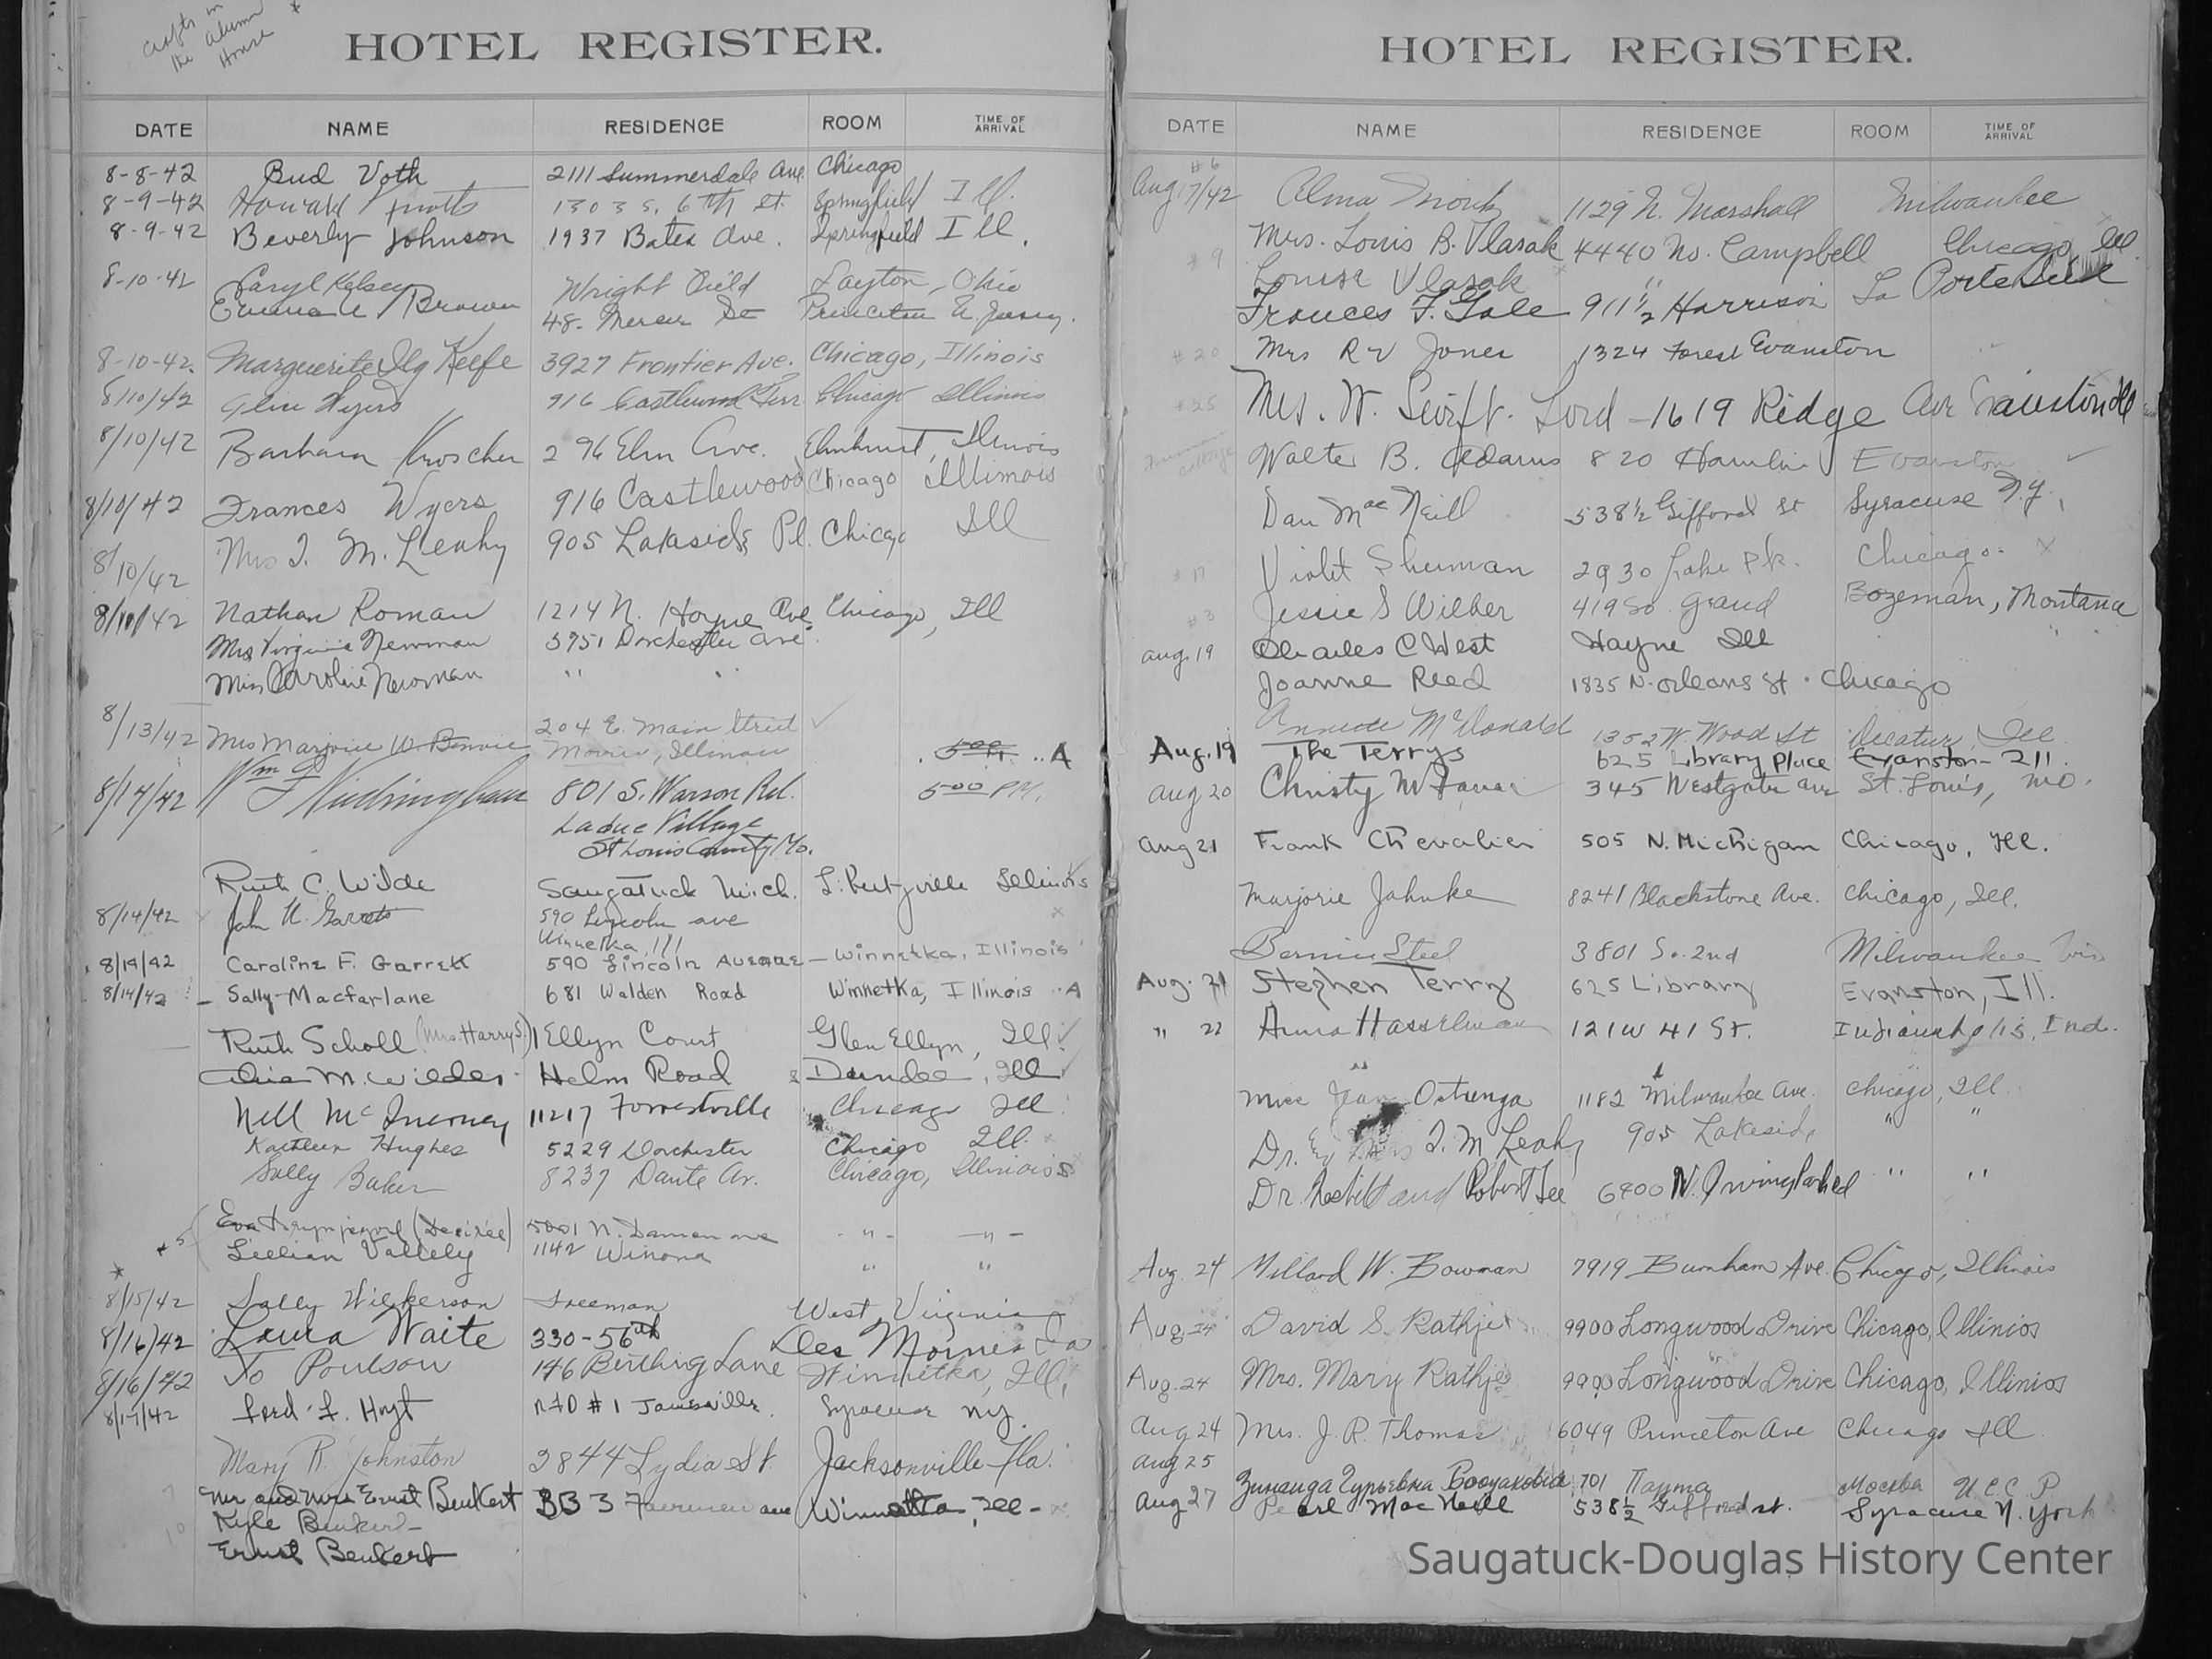 Crafts in
the Alumni
House
*
HOTEL REGISTER.
DATE NAME RESIDENCE ROOM TIME OF ARRIVAL
8-8-42 Bud Voth 2111 Summerdale Ave Chicago
8-9-42 Howard 1303 S. 6th St. Springfield Ill.
8-9-42 Beverly Johnson 1937 Bates Ave. Springfield Ill.
8-10-42 Caryl Kelsey Wright Field Dayton, Ohio
Brown 48- Mercer St Princeton N. Jersey.
8-10-42. Marguerite Ilg Keefe 3927 Frontier Ave. Chicago, Illinois
8/10/42 Wyers 916 Castlewood Terr Chicago Illinois
8/10/42 Barbara 296 Elm Ave. Elmhurst, Illinois
8/10/42 Frances Wyers 916 Castlewood Chicago Illinois
8/10/42 Mrs I. M. Leahy 905 Lakeside Pl. Chicago Ill
8/10/42 Nathan Roman 1214 N. Hoyne Ave. Chicago, Ill
Mrs Virginia Newman 5751 Dorchester Ave.
Miss Caroline Newman " "
8/13/42 Mrs Marjorie W. 204 E. Main Street
Illinois A
8/14/42 Wm 801 S. Warson Rd. 5:00 PM.
Ladue Village
St Louis County Mo.
Ruth C. Wilde Saugatuck Mich. Libertyville Illinois
8/14/42 John 590 Lincoln ave
Winnetka, Ill
8/14/42 Caroline F. Garrett 590 Lincoln Avenue - Winnetka, Illinois
8/14/42 - Sally Macfarlane 681 Walden Road Winnetka, Illinois A
Ruth Scholl (Mrs. Harry S.) 1 Ellyn Court Glen Ellyn, Ill.
M. Wilder Helm Road Dundee, Ill
Nell McInerney 11217 Forrestville Chicago Ill.
Kathleen Hughes 5229 Dorchester Chicago Ill.
Sally Baker 8237 Dante Av. Chicago, Illinois
Eva (Desirée) 5001 N. Damen ave " "
Lillian Vallely 1142 Winona " "
8/15/42 Sally Wilkerson Freeman West Virginia
8/16/42 Laura Waite 330-56th Des Moines Ia
8/16/42 Jo Poulson 146 Lane Winnetka, Ill.
8/17/42 Ford L. Hoyt RFD #1 Jamesville. Syracuse NY.
Mary R. Johnston 2844 Lydia St. Jacksonville Fla.
Mr and Mrs Ernst Beukert 333 ave Winnetka, Ill -
Kyle Beukert
Ernst Beukert
HOTEL REGISTER.
DATE NAME RESIDENCE ROOM TIME OF ARRIVAL
#6
Aug 17/42 Alma 1129 N. Marshall Milwaukee
Mrs. Louis B. Vlasak 4440 No. Campbell Chicago, Ill.
#9 Louise Vlasak "
Frances F. Gale 911½ Harrison La Porte Ind
#20 Mrs R V Jones 1324 Forest Evanston
#25 Mrs. W. Swift. Lord - 1619 Ridge Ave Evanston Ill
cottage Walter B. Adams 820 Hamlin Evanston
Dan MacNeill 538½ Gifford St Syracuse N.Y.
#17 Violet Shuman 2930 Lake Pk. Chicago.
#3 Jessie S Wilber 419 So. Grand Bozeman, Montana
Aug. 19 Charles C West Wayne Ill
Joanne Reed 1835 N. Orleans St. Chicago
Annette McDonald 1352 W. Wood St Decatur, Ill
Aug. 19 The Terrys 625 Library Place Evanston - Ill.
Aug 20 Christy 345 Westgate Ave St. Louis, Mo.
Aug 21 Frank Chevalier 505 N. Michigan Chicago, Ill.
Marjorie Jahnke 8241 Blackstone Ave. Chicago, Ill.
Bernice Steel 3801 So. 2nd Milwaukee Wis
Aug. 21 Stephen Terry 625 Library Evanston, Ill.
" 22 Anna Hasselman 121 W 41 St. Indianapolis, Ind.
Miss Jean Ostenga 1182 Milwaukee Ave. Chicago, Ill.
Dr. I. M Leahy 905 Lakeside " "
Dr. Nesbitt and Robert Lee 6400 N. Irving Park Rd " "
Aug. 24 Millard W. Bowman 7919 Burnham Ave. Chicago, Illinois
Aug. 24 David S. Rathje 9900 Longwood Drive Chicago, Illinios
Aug. 24 Mrs. Mary Rathje 9900 Longwood Drive Chicago, Illinios
Aug 24 Mrs. J. R. Thomas 6049 Princeton Ave Chicago Ill
Aug 25
701 Москва
Aug 27 Pearl MacNeill 538½ Gifford st. Syracuse N. York
Saugatuck-Douglas History Center